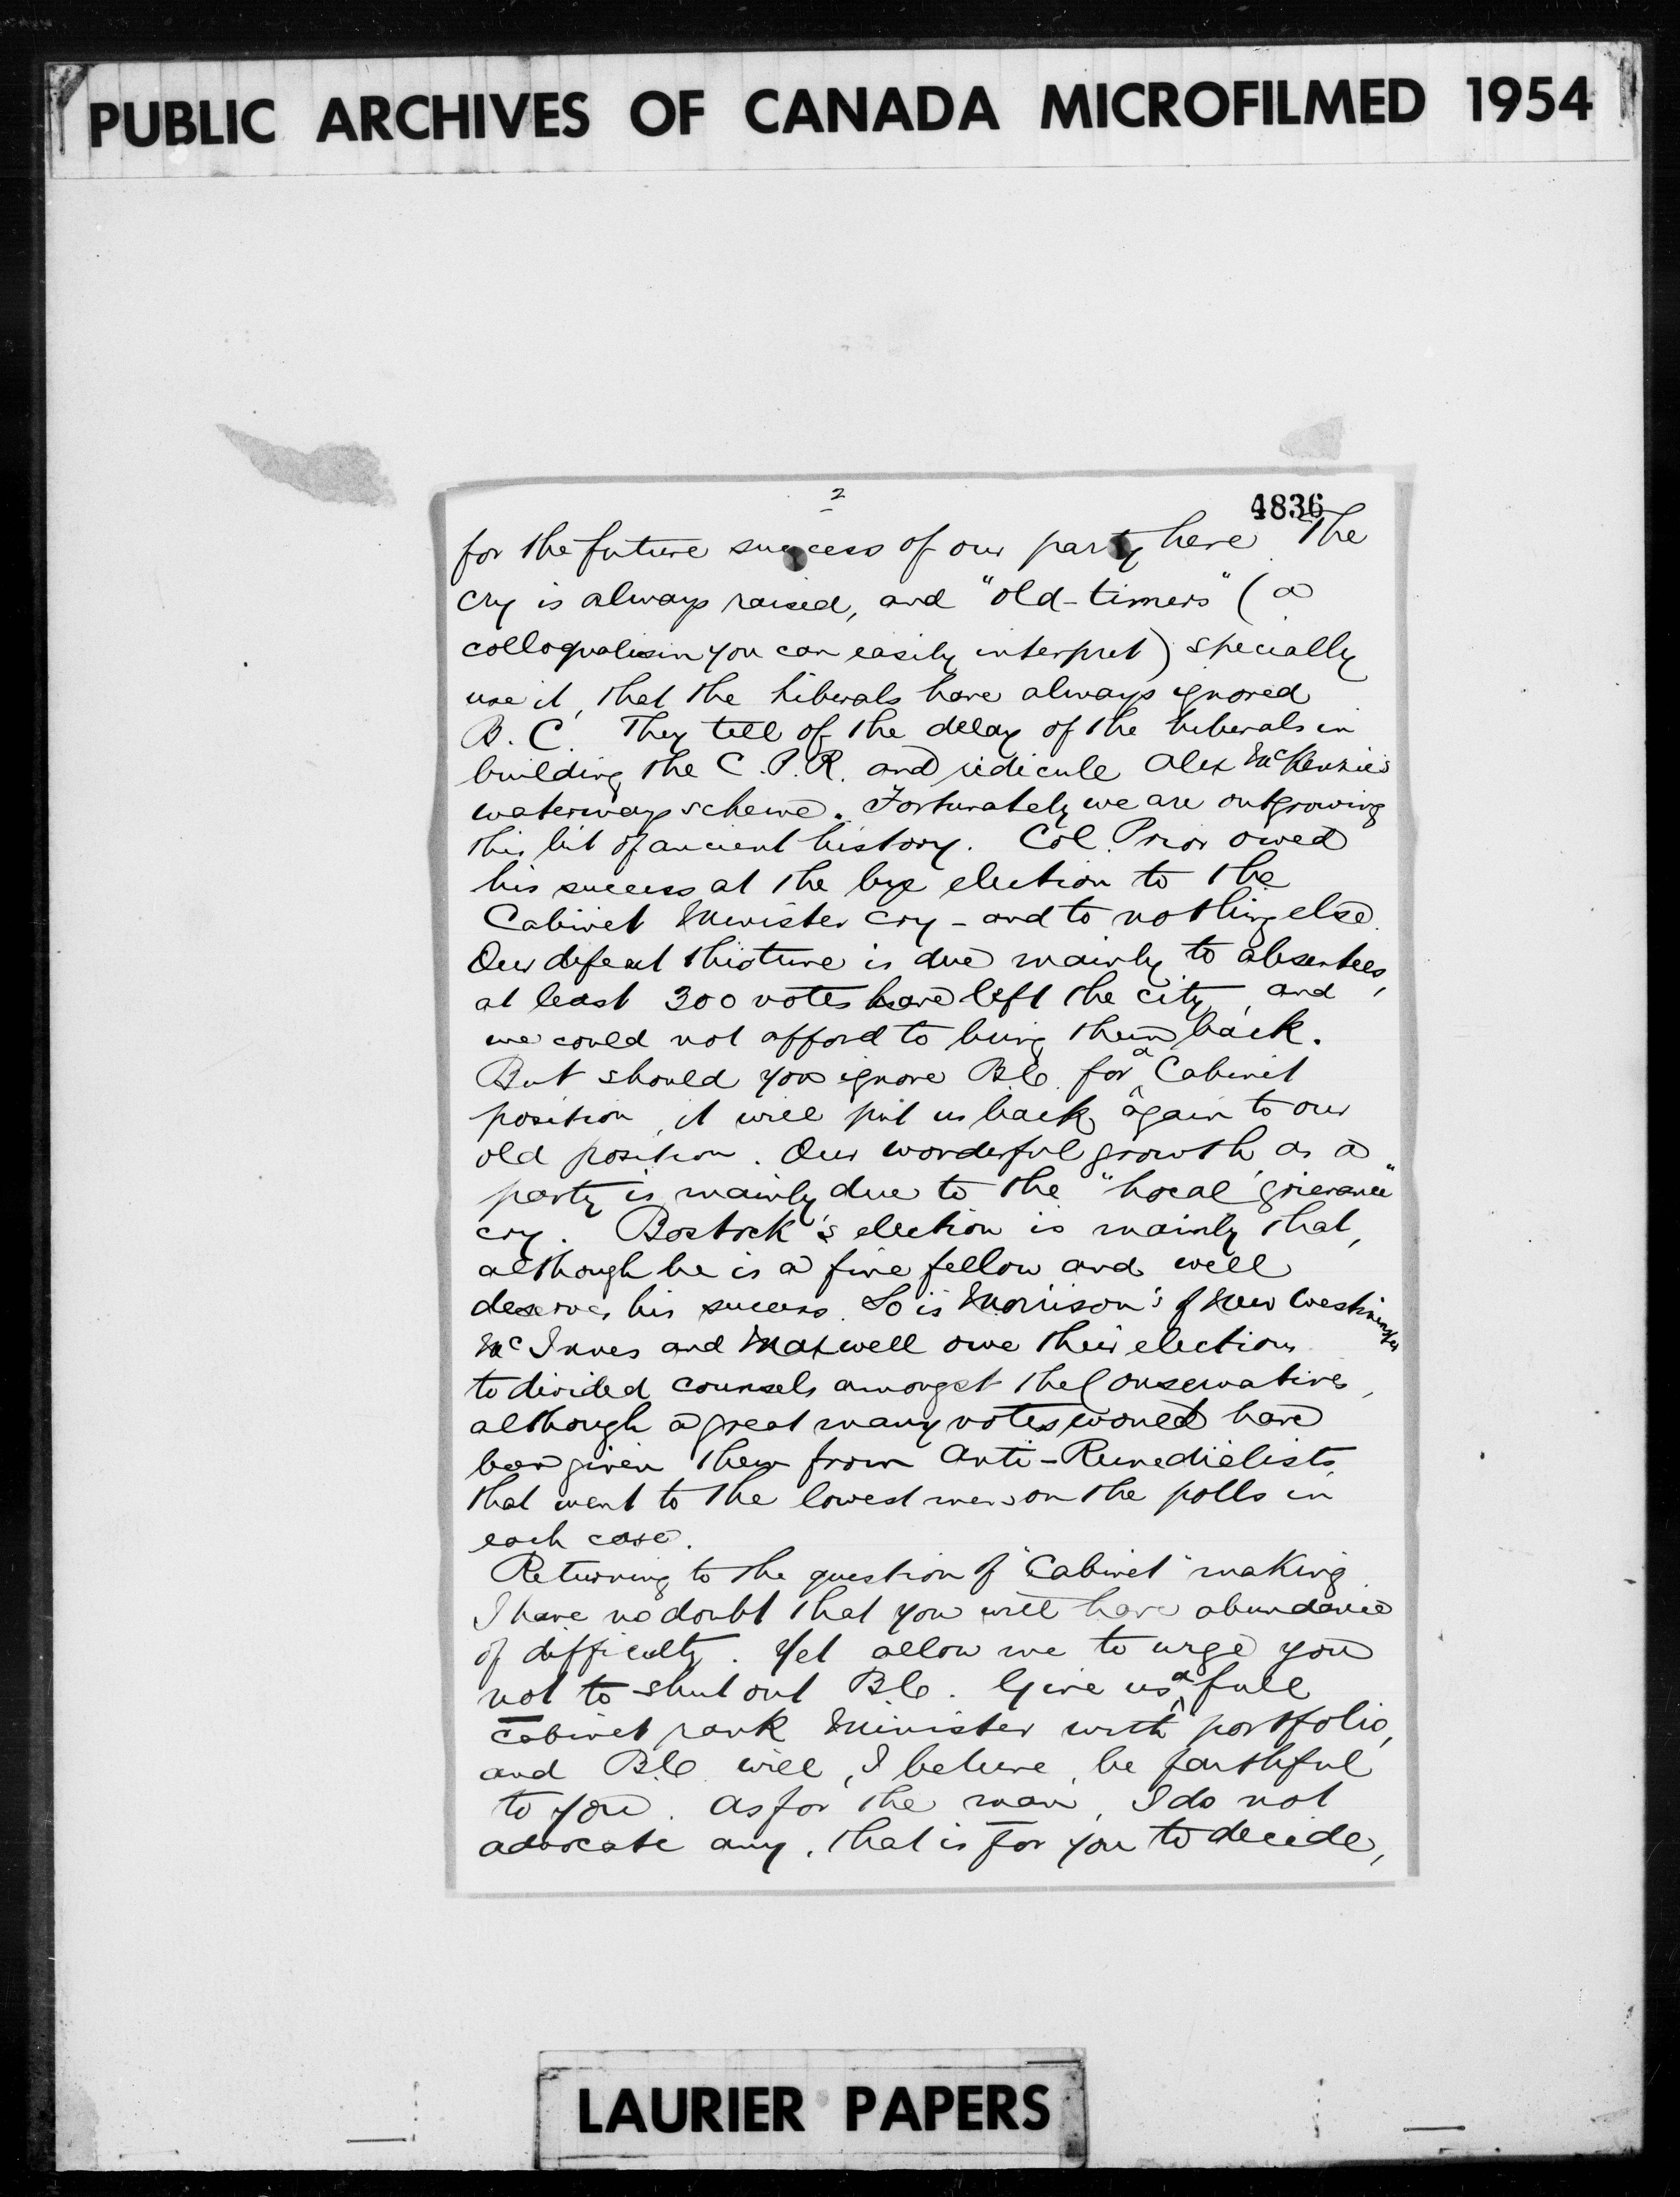 PUBLIC ARCHIVES OF CANADA MICROFILMED 1954
2
4836
for the future success of our party here. The
cry is always raised, and "old-timers" (a
colloqualism you can easily interpret) specially
use it, that the Liberals have always ignored
B. C. They tell of the delay of the Liberals in
building the C.P.R. and ridicule Alex McKenzie's
waterway scheme. Fortunately we are outgrowing
this bit of ancient history. Col. Prior owed
his success at the bye election to the
Cabinet Minister cry - and to nothing else.
Our defeat this time is due mainly to absentees,
at least 300 votes have left the city, and
we could not afford to bring them back.
But should you ignore B.C. for a Cabinet
position, it will put us back again to our
old position. Our wonderful growth as a
party is mainly due to the "local grievance"
cry. Bostock's election is mainly that,
although he is a fine fellow and well
deserves his success. So is Morrison's of New Westminster
McInnes and Maxwell owe their election
to divided counsels amongst the Conservatives,
although a great many votes would have
been given them from Anti-Remedialists
that went to the lowest men on the polls in
each case.
Returning to the question of "Cabinet" making
I have no doubt that you will have abundance
of difficulty. Yet allow me to urge you
not to shut out B.C. Give us a full
cabinet rank Minister with portfolio,
and B.C. will, I believe, be faithful
to you. As for the man, I do not
advocate any, that is for you to decide,
LAURIER PAPERS